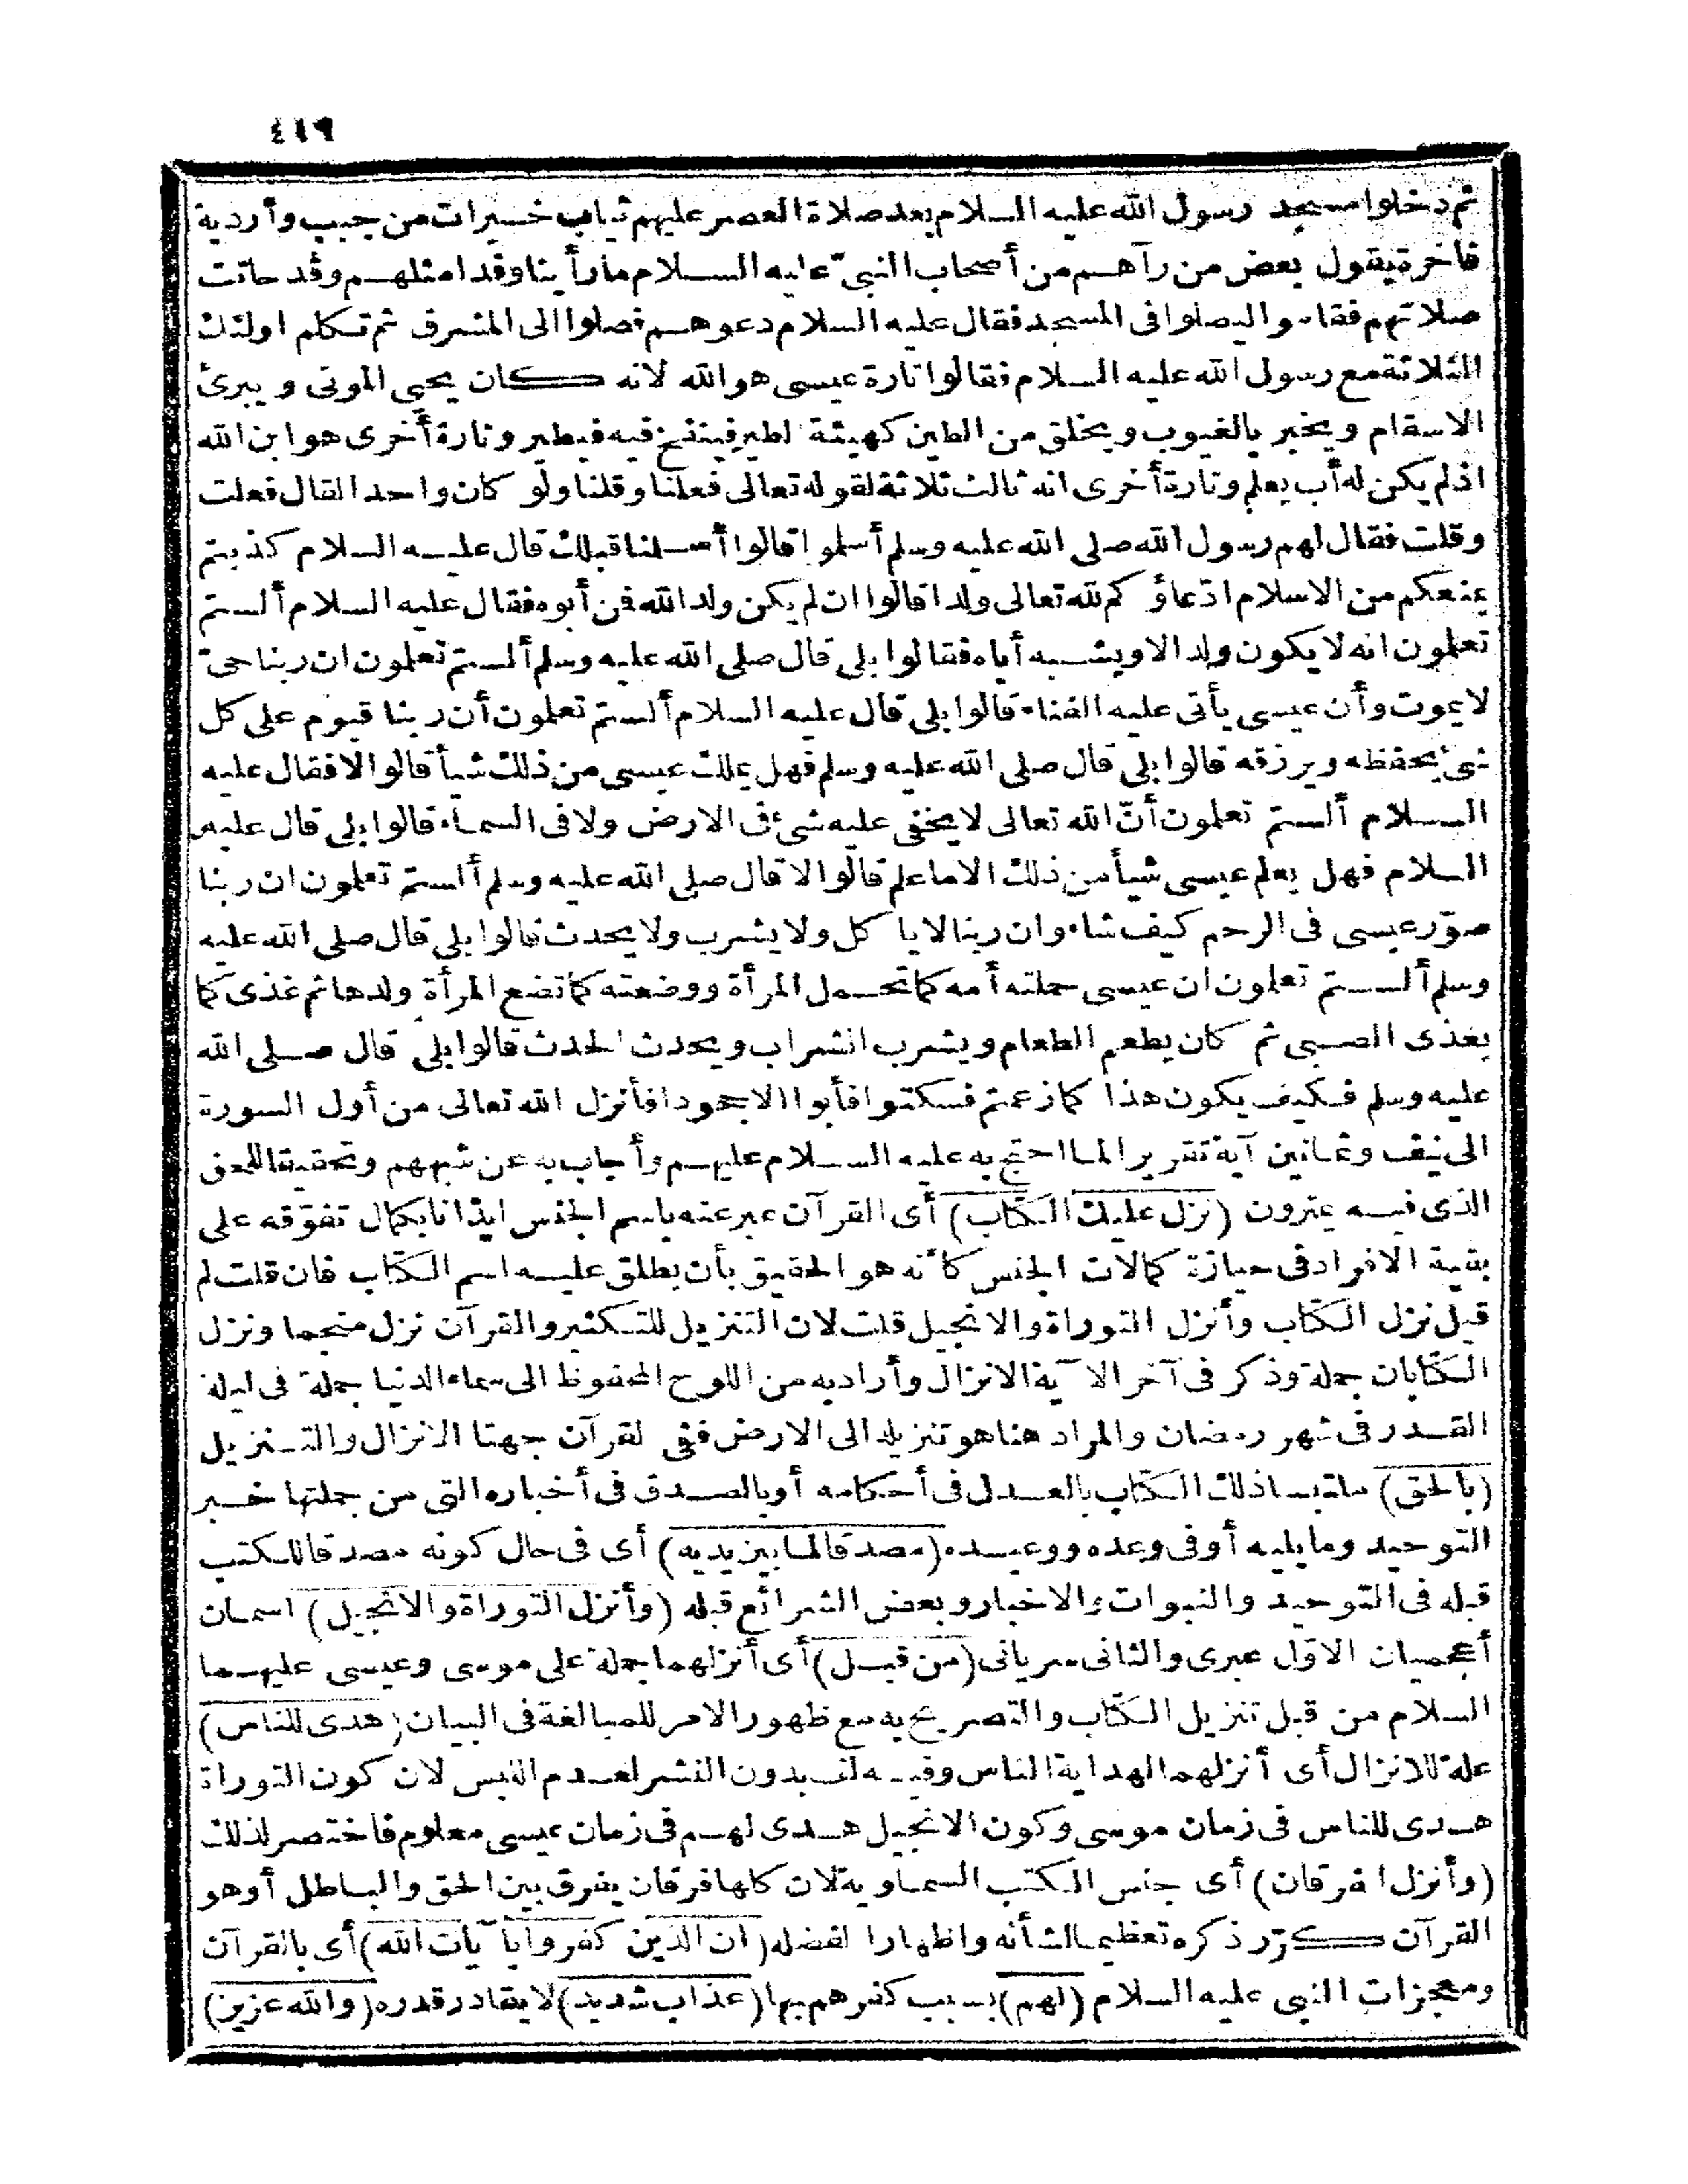 ٤١٩
ثم دخلوا مسجد رسول الله عليه السلام بعد صلاة العصر عليهم ثياب حبرات من جبب وأردية
فاخرة يقول بعض من رآهم من أصحاب النبي عليه السلام مارأينا وفدا مثلهم وقد حانت
صلاتهم فقاموا ليصلوا فى المسجد فقال عليه السلام دعوهم فصلوا الى المشرق ثم تكلم اولئك
الثلاثة مع رسول الله عليه السلام فقالوا تارة عيسى هو الله لانه كان يحيى الموتى ويبرئ
الاسقام ويخبر بالغيوب ويخلق من الطين كهيئة الطير فينفخ فيه فيطير وتارة أخرى هو ابن الله
اذ لم يكن له أب يعلم وتارة أخرى انه ثالث ثلاثة لقوله تعالى فعلنا وقلنا ولو كان واحدا لقال فعلت
وقلت فقال لهم رسول الله صلى الله عليه وسلم أسلموا قالوا أسلمنا قبلك قال عليه السلام كذبتم
يمنعكم من الاسلام ادّعاؤكم لله تعالى ولدا قالوا ان لم يكن ولد الله فمن أبوه فقال عليه السلام ألستم
تعلمون انه لا يكون ولد الا ويشبه أباه فقالوا بلى قال صلى الله عليه وسلم ألستم تعلمون ان ربنا حىّ
لا يموت وأن عيسى يأتى عليه الفناء قالوا بلى قال عليه السلام ألستم تعلمون أن ربنا قيوم على كل
شئ يحفظه ويرزقه قالوا بلى قال صلى الله عليه وسلم فهل يملك عيسى من ذلك شيأ قالوا لا فقال عليه
السلام ألستم تعلمون أنّ الله تعالى لا يخفى عليه شئ فى الارض ولا فى السماء قالوا بلى قال عليه
السلام فهل يعلم عيسى شيأ من ذلك الا ما علم قالوا لا قال صلى الله عليه وسلم ألستم تعلمون ان ربنا
صوّر عيسى فى الرحم كيف شاء وان ربنا لا يأكل ولا يشرب ولا يحدث قالوا بلى قال صلى الله عليه
وسلم ألستم تعلمون ان عيسى حملته أمه كما تحمل المرأة ووضعته كما تضع المرأة ولدها ثم غذى كما
يغذى الصبى ثم كان يطعم الطعام ويشرب الشراب ويحدث الحدث قالوا بلى قال صلى الله
عليه وسلم فكيف يكون هذا كما زعمتم فسكتوا فأبوا الا جحودا فأنزل الله تعالى من أول السورة
الى نيف وثمانين آية تقريرا لما احتج به عليه السلام عليهم وأجاب به عن شبههم وتحقيقا للحق
الذى فيه يمترون (نزل عليك الكتاب) أى القرآن عبر عنه باسم الجنس ايذانا بكمال تفوّقه على
بقية الافراد فى حيازة كمالات الجنس كأنه هو الحقيق بأن يطلق عليه اسم الكتاب فان قلت لم
قيل نزل الكتاب وأنزل التوراة والانجيل قلت لان التنزيل للتكثير والقرآن نزل منجما ونزل
الكتابان جملة وذكر فى آخر الآية الانزال وأراد به من اللوح المحفوظ الى سماء الدنيا جملة فى ليلة
القدر فى شهر رمضان والمراد هنا هو تنزيله الى الارض ففى القرآن جهتا الانزال والتنزيل
(بالحق) ملتبسا ذلك الكتاب بالعدل فى أحكامه أو بالصدق فى أخباره التى من جملتها خبر
التوحيد وما يليه أو فى وعده ووعيده (مصدقا لما بين يديه) أى فى حال كونه مصدقا للكتب
قبله فى التوحيد والنبوات والاخبار وبعض الشرائع قبله (وأنزل التوراة والانجيل) اسمان
أعجميان الاوّل عبرى والثانى سريانى (من قبل) أى أنزلهما جملة على موسى وعيسى عليهما
السلام من قبل تنزيل الكتاب والتصريح به مع ظهور الامر للمبالغة فى البيان (هدى للناس)
علة للانزال أى أنزلهما لهداية الناس وفيه لف بدون النشر لعدم اللبس لان كون التوراة
هدى للناس فى زمان موسى وكون الانجيل هدى لهم فى زمان عيسى معلوم فاختصر لذلك
(وأنزل الفرقان) أى جنس الكتب السماوية لان كلها فرقان يفرق بين الحق والباطل أو هو
القرآن كرّر ذكره تعظيما لشأنه واظهارا لفضله (ان الذين كفروا بآيات الله) أى بالقرآن
ومعجزات النبى عليه السلام (لهم) بسبب كفرهم بها (عذاب شديد) لا يقادر قدره (والله عزيز)